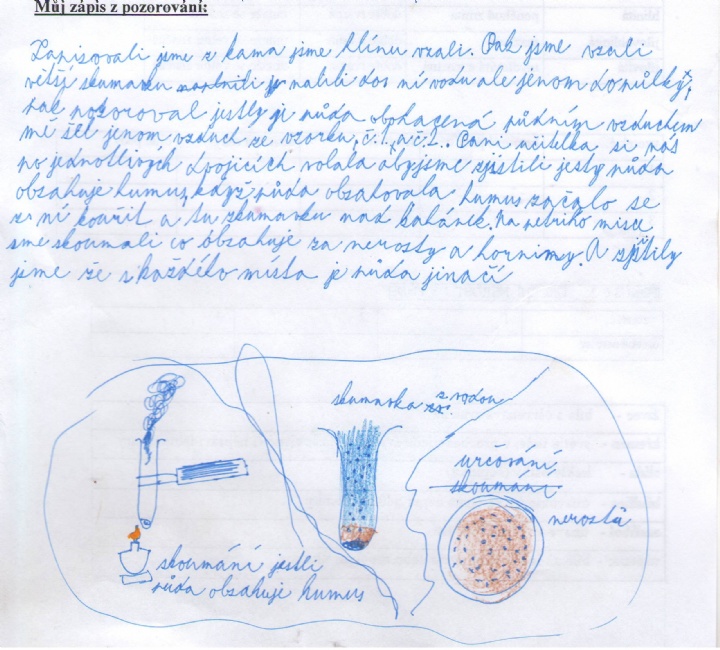 Můj zápis z pozorování:
Zapisovali jsme z kama jsme hlínu vzali. Pak jsme vzali
větší skumavku nalili do ní vodu ale jenom do půlky,
pak pozoroval jestly je půda obohacená půdním vzduchem
mě šel jenom vzduch ze vzorku č.1, a č.2.. Paní učitelka si nás
po jednotlivých dvojicích volala abyjsme zjistili jestly půda
obsahuje humus, když půda obsahovala humus začalo se
z ní kouřit a tu zkumavku nad kahánek. Na petriho misce
sme skoumali co obsahuje za nerosty a horniny. A zjistily
jsme že s každého místa je půda jinačí
skumavka z vodou
určování
skoumání
nerostů
skoumání jestli
půda obsahuje humus